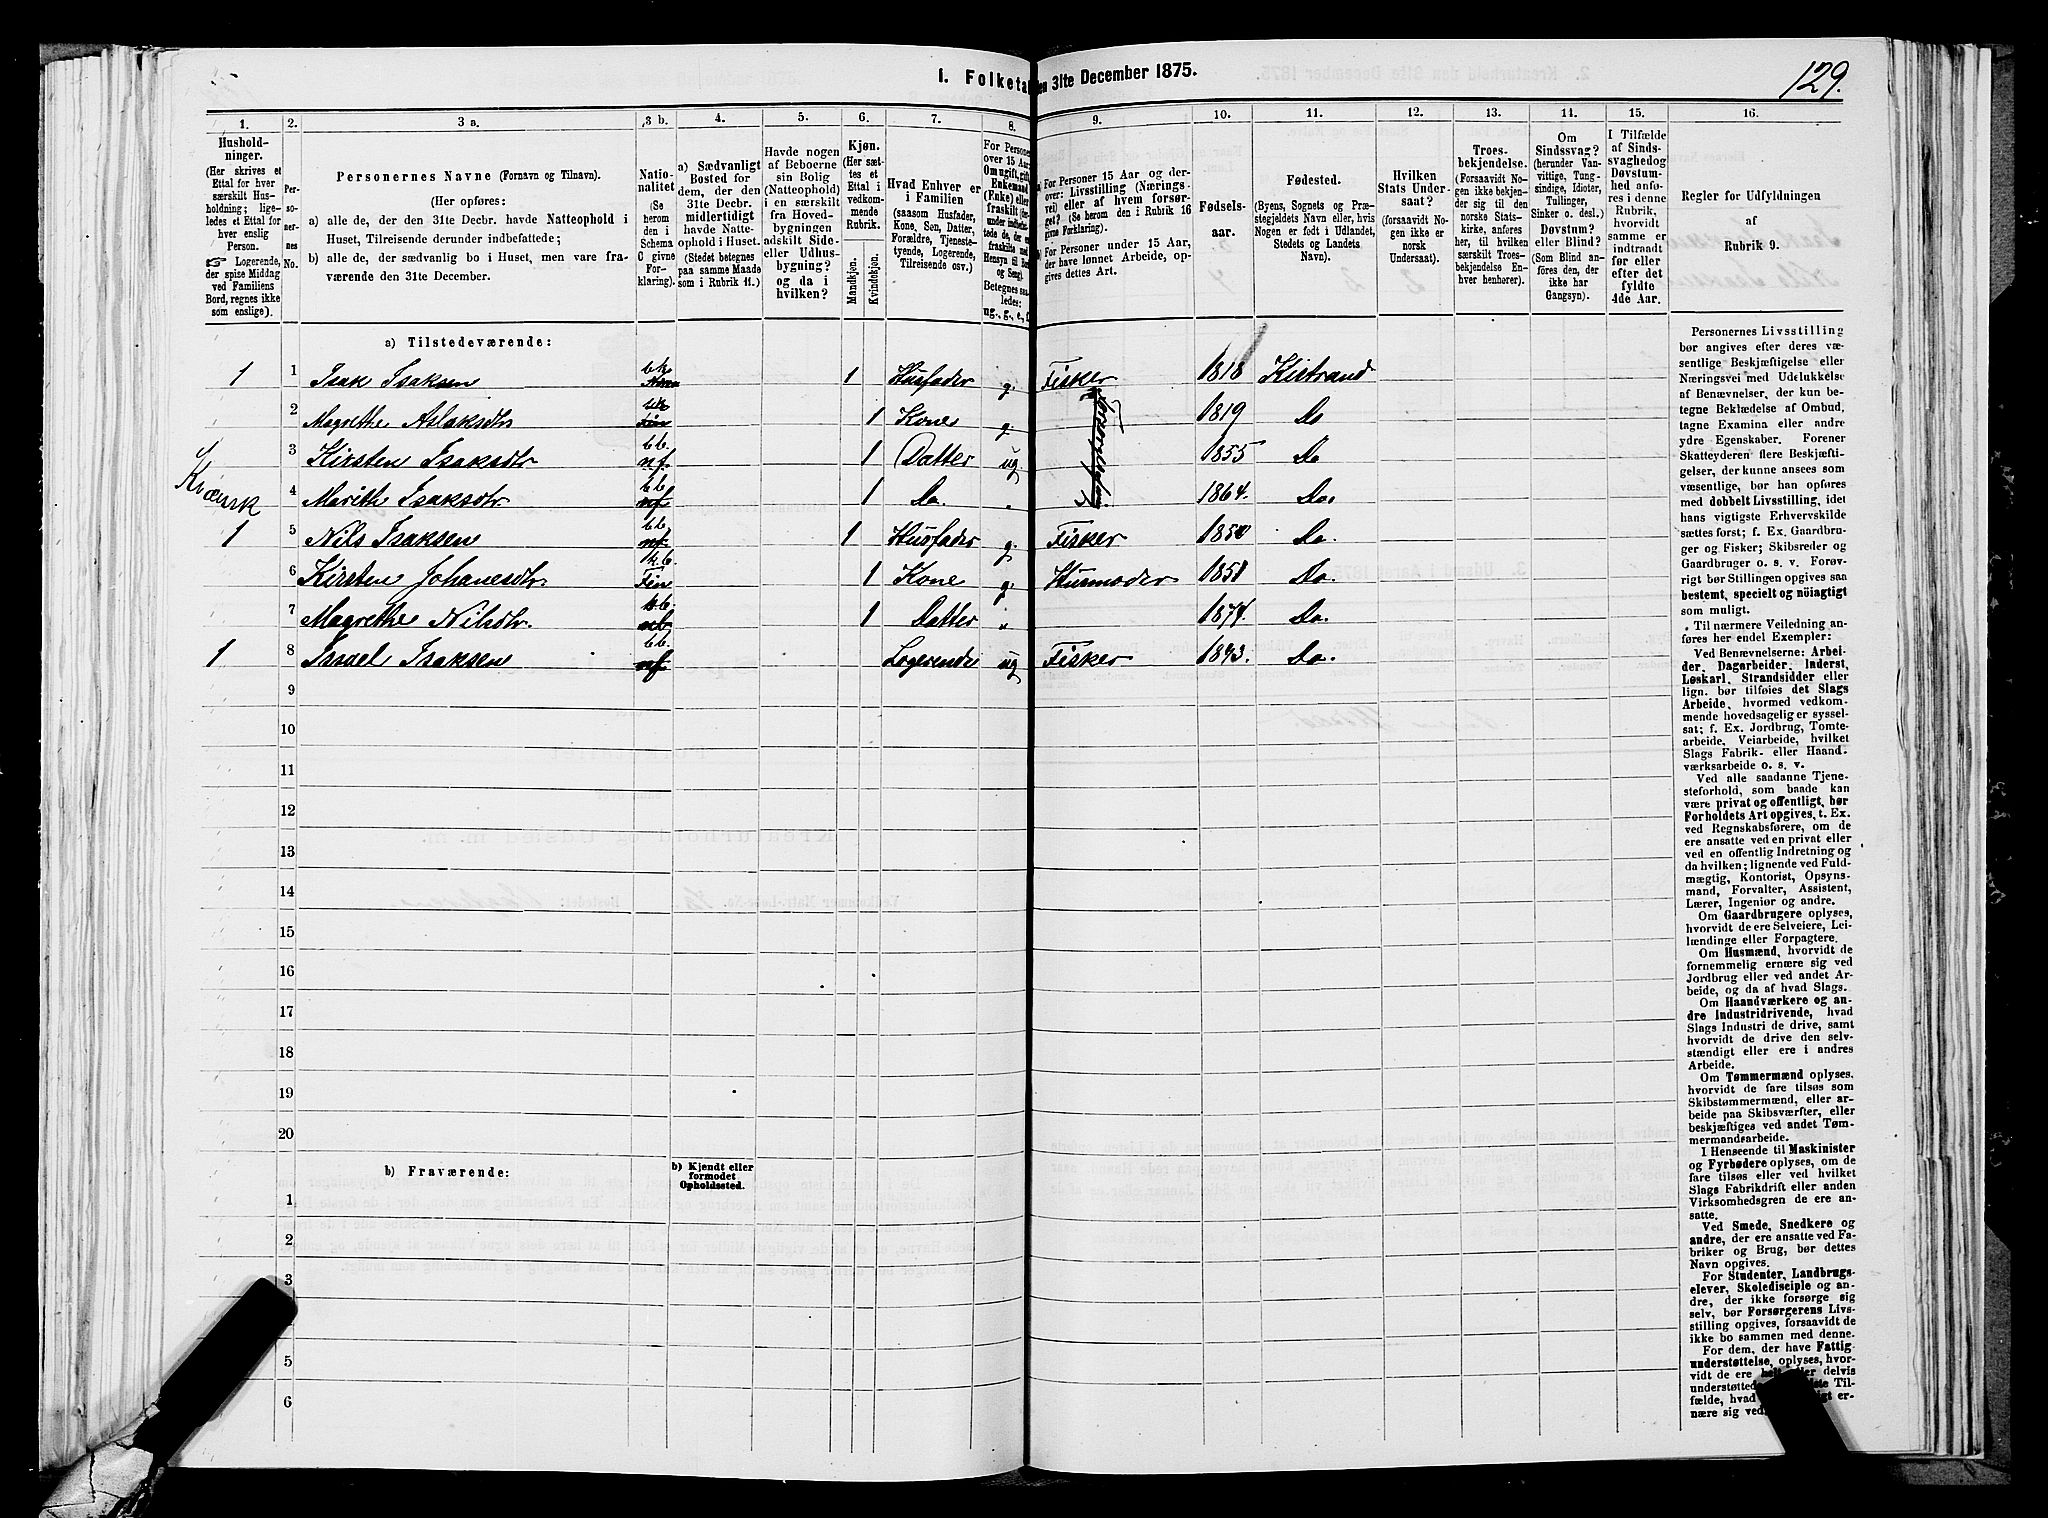 1. Folketa
en 31te December 1875.
129.
1.
Hushold-
ninger.
(Her skrives et
Ettal for hver
særskilt Hus-
holdning; lige-
ledes et Ettal for
hver enslig
Person.
Logerende,
der spise Middag
ved Familiens
Bord, regnes ikke
som enslige).
2.
Per-
so-
ner-
nes
No.
3 a.
Personernes Navne (Fornavn og Tilnavn).
(Her opføres:
a) alle de, der den 31te Decbr. havde Natteophold i
Huset, Tilreisende derunder indbefattede;
b) alle de, der sædvanlig bo i Huset, men vare fra-
værende den 31te December.
3 b.
Natio-
nalitet
(Se
herom
den i
Schema
C givne
For-
klaring).
4.
a) Sædvanligt
Bosted for
dem, der den
31te Decbr.
midlertidigt
havde Natte-
ophold i Huset.
(Stedet betegnes
paa samme Maade
som i Rubrik 11.)
5.
Havde nogen
af Beboerne
sin Bolig
(Natteophold)
i en særskilt
fra Hoved-
bygningen
adskilt Side-
eller Udhus-
bygning?
og da i
hvilken?
6.
Kjøn.
(Her sæt-
tes et
Ettal i
vedkom-
mende
Rubrik.
Mandkjøn.
Kvindekjøn.
7.
Hvad Enhver er
i Familien
(saasom Husfader,
Kone, Søn, Datter,
Forældre, Tjeneste-
tyende, Logerende,
Tilreisende osv.)
8.
For Personer
over 15 Aar
9.
For Personer 15 Aar og der-
over: Livsstilling (Nærings-
vei) eller af hvem forsør-
get? (Se herom den i Rubrik 16
givne Forklaring).
For Personer under 15 Aar,
der have lønnet Arbeide, op-
gives dettes Art.
10.
Fødsels-
aar.
11.
Fødested.
(Byens, Sognets og Præ-
stegjeldets Navn eller, hvis
Nogen er født i Udlandet,
Stedets og Landets
Navn).
12.
Hvilken
Stats Under-
saat?
(forsaavidt No-
gen ikke er
norsk
Undersaat).
13.
Troes-
bekjendelse.
(Forsaavidt No-
gen ikke bekjen-
der sig til den
norske Stats-
kirke, anføres
her, til hvilken
særskilt Troes-
bekjendelse En-
hver henhører).
14.
Om
Sindssvag?
(herunder Van-
vittige, Tung-
sindige, Idioter,
Tullinger,
Sinker o. desl.)
Døvstum?
eller Blind?
(Som Blind an-
føres den, der
ikke har
Gangsyn).
15.
I Tilfælde
af Sinds-
svaghedog
Døvstum-
hed anfø-
res i denne
Rubrik,
hvorvidt
samme er
indtraadt
før eller
efter det
fyldte
4de Aar.
16.
Regler for Udfyldningen
af
Rubrik 9.
a) Tilstedeværende:
1 1 Isak Isaksen 1 Husfader g. Fisker 1818 Kistrand
2 Magrethe Aslaksdtr 1 Kone g. 1819 Do
3 Kirsten Isaksdtr b.b. nf. 1 Datter ug. 1855 Do
Kvænvik
4 Marith Isaksdtr. b.b. nf 1 Do. „ 1864. Do.
1 5 Nils Isaksen b.b. nf. 1 Husfader g. Fisker 1850 Do.
6 Kirsten Johanesdtr. Fin 1 Kone g. Husmoder 1851 Do.
7 Magrethe Nilsdtr. 1 Datter „ 1874. Do.
1 8 Israel Isaksen b.b. nf Logerende ug Fisker 1843. Do.
9
10
11
12
13
14
15
16
17
18
19
20
b) Fraværende:
b) Kjendt eller
formodet
Opholdssted.
1
2
3
5
6
Personernes Livsstilling
bør angives efter deres væ-
sentlige Beskjæftigelse eller
Næringsvei med Udelukkelse
af Benævnelser, der kun be-
tegne Beklædelse af Ombud,
tagne Examina eller andre
ydre Egenskaber. Forener
Skatteyderen flere Beskjæfti-
gelser, der kunne ansees som
væsentlige, bør han opføres
med dobbelt Livsstilling, idet
hans vigtigste Erhvervskilde
sættes først; f. Ex. Gaardbru-
ger og Fisker; Skibsreder og
Gaardbruger o. s. v. Forøv-
rigt bør Stillingen opgives saa
bestemt, specielt og nöiagtigt
som muligt.
Til nærmere Veiledning an-
føres her endel Exempler:
Ved Benævnelserne: Arbei-
der, Dagarbeider, Inderst,
Løskarl, Strandsidder eller
lign. bør tilføies det Slags
Arbeide, hvormed vedkom-
mende hovedsagelig er syssel-
sat; f. Ex. Jordbrug, Tomte-
arbeide, Veiarbeide, hvilket
Slags Fabrik- eller Haand-
værksarbeide o. s. v.
Ved alle saadanne Tjene-
steforhold, som baade kan
være privat og offentligt, bør
Forholdets Art opgives, t. Ex.
ved Regnskabsførere, om de
ere ansatte ved en privat eller
ved en offentlig Indretning og
da hvilken; lignende ved Fuld-
mægtig, Kontorist, Opsyns-
mand, Forvalter, Assistent,
Lærer, Ingeniør og andre.
Om Gaardbrugere oplyses,
hvorvidt de ere Selveiere, Lei-
lændinge eller Forpagtere.
Om Husmænd, hvorvidt de
fornemmelig ernære sig ved
Jordbrug eller ved andet Ar-
beide, og da af hvad Slags.
Om Haandværkere og an-
dre Industridrivende, hvad
Slags Industri de drive, samt
hvorvidt de drive den selv-
stændigt eller ere i andres
Arbeide.
Om Tømmermænd oplyses,
hvorvidt de fare tilsøs som
Skibstømmermænd, eller ar-
beide paa Skibsværfter, eller
beskjæftiges ved andet Tøm-
mermandsarbeide.
I Henseende til Maskinister
og Fyrbødere oplyses, om de
fare tilsøs eller ved hvilket
Slags Fabrikdrift eller anden
Virksomhedsgren de ere an-
satte.
Ved Smede, Snedkere og
andre, der ere ansatte ved Fa-
briker og Brug, bør dettes
Navn opgives.
For Studenter, Landbrugs-
elever, Skoledisciple og an-
dre, der ikke forsørge sig
selv, bør Forsørgerens Livs-
stilling opgives, forsaavidt de
ikke bo sammen med denne.
For dem, der have Fattig-
understøttelse, oplyses, hvor-
vidt de ere helt eller delvis
understøttede
fælde, hvad
nære sig ved